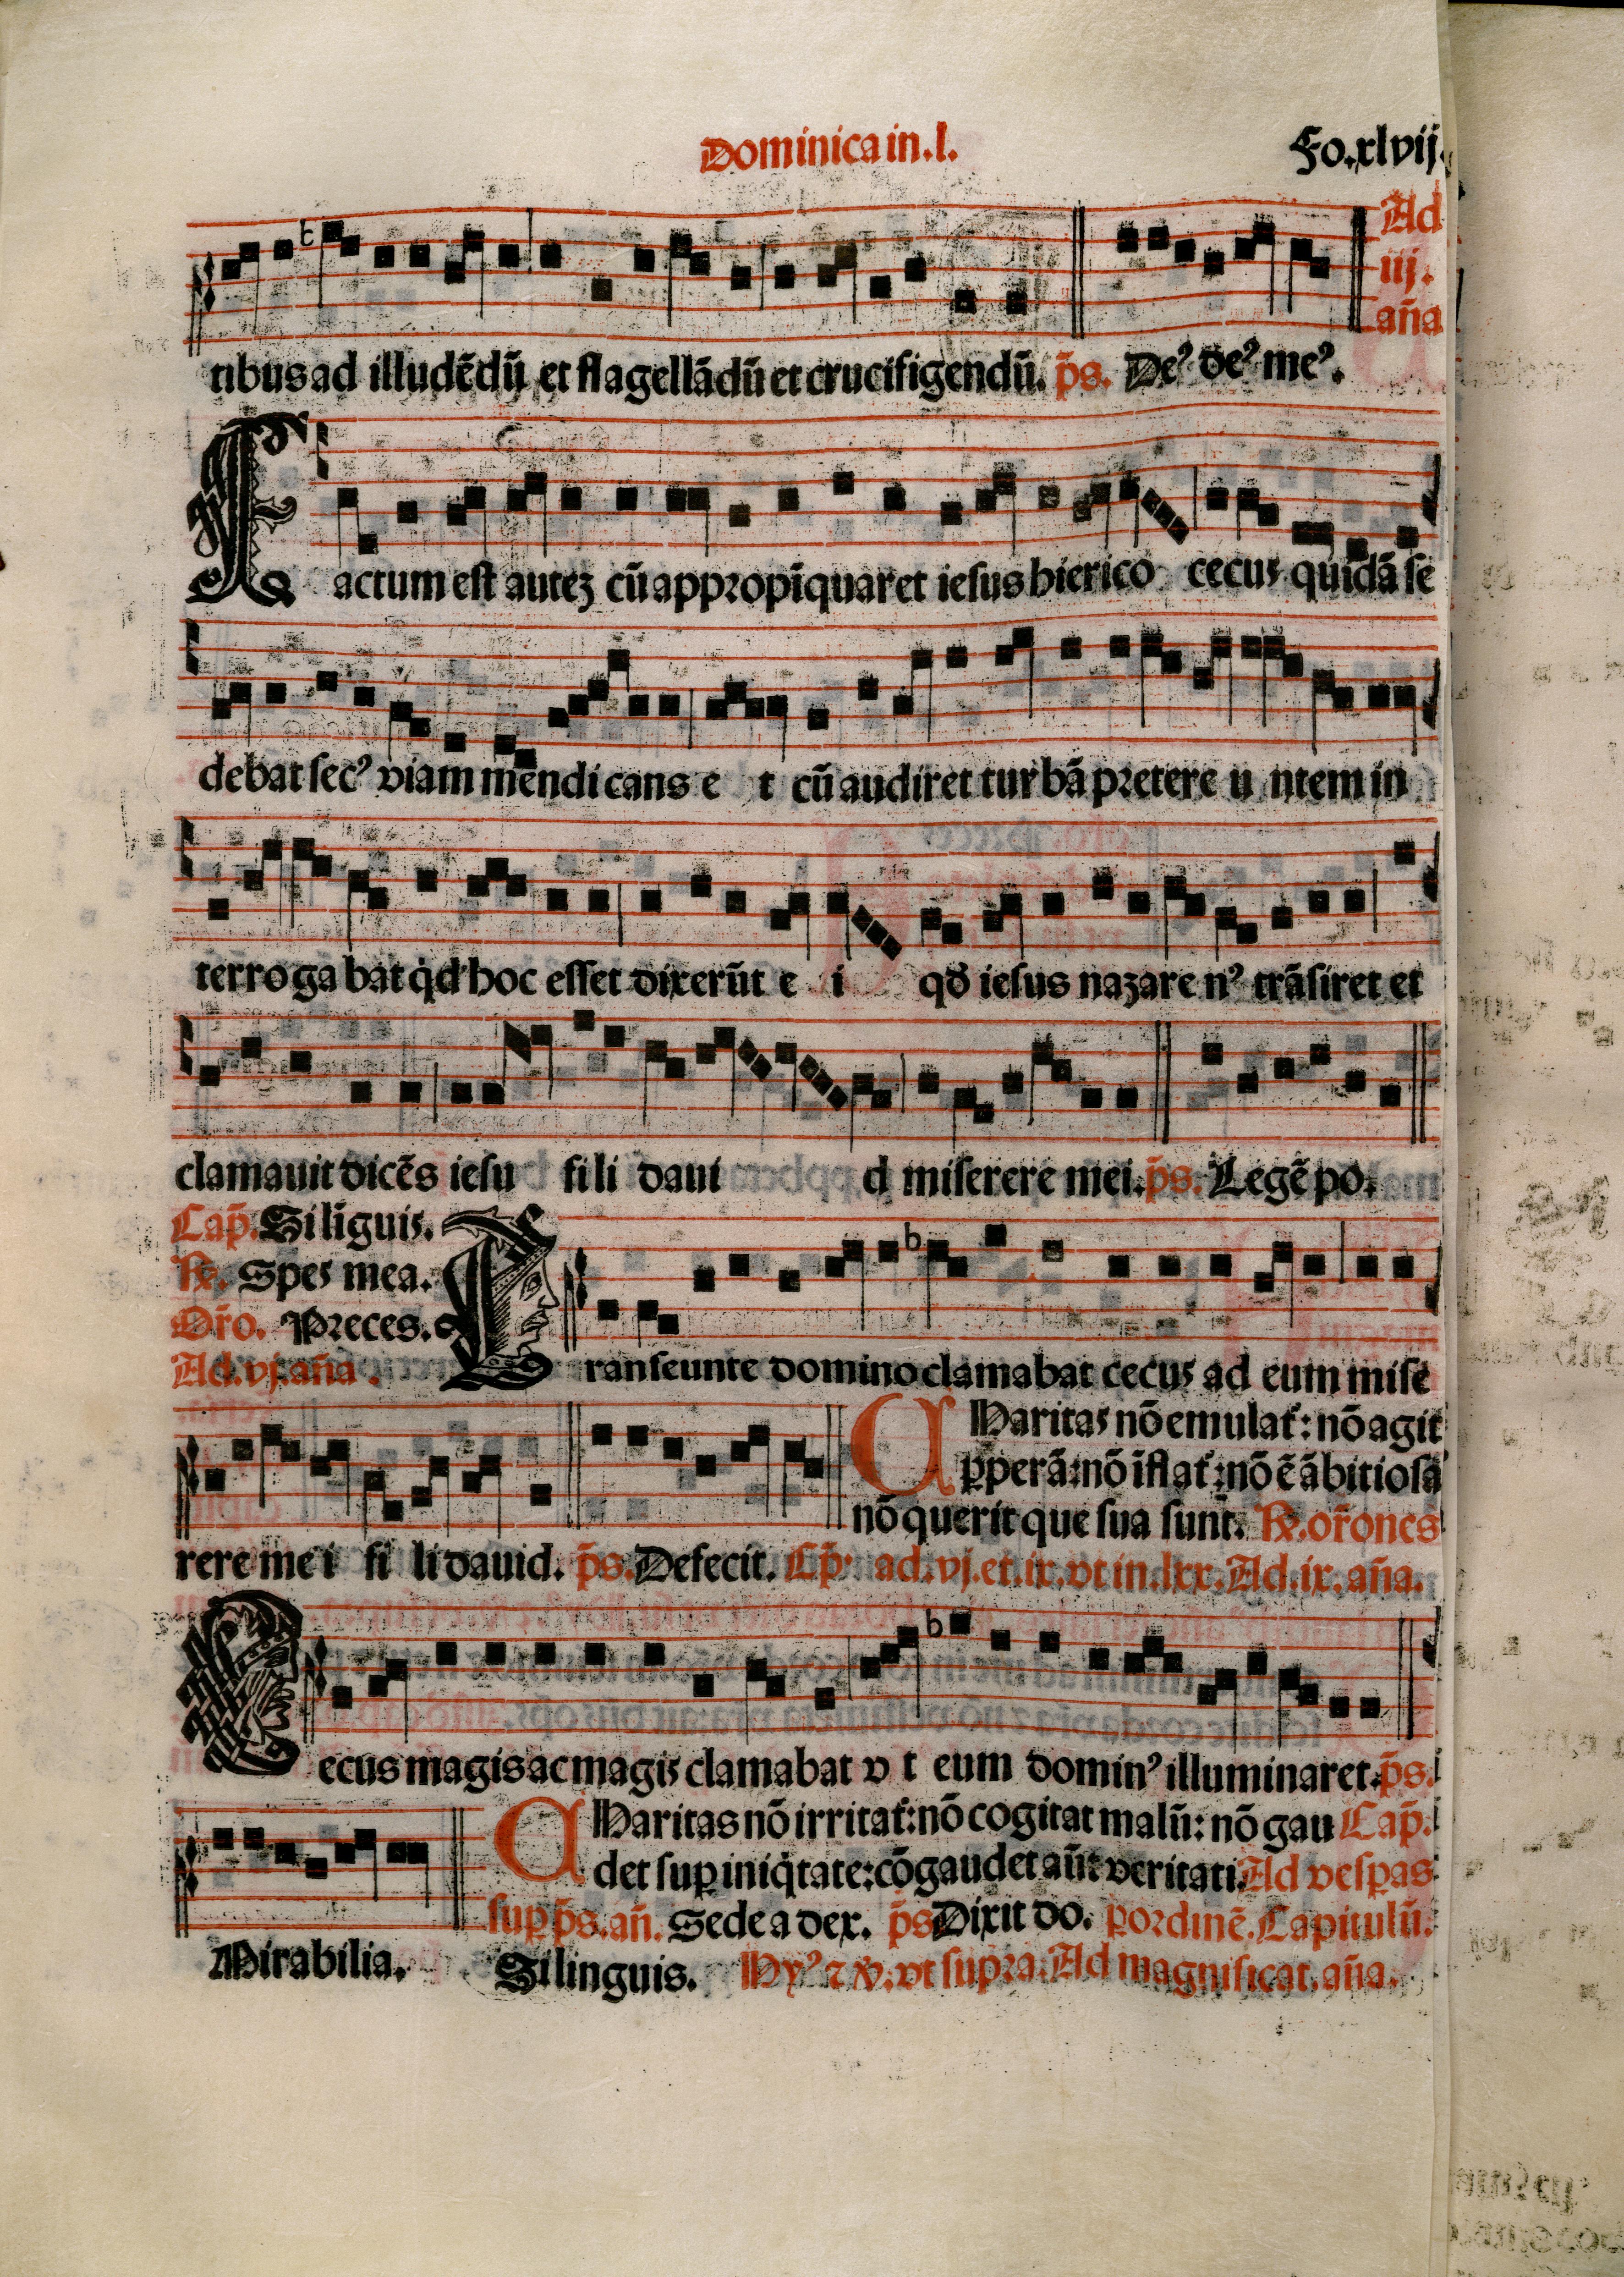 Dominica in .l. Fo. xlvij.
Ad
iij.
an̄a
tibus ad illudēdū et flagellādū et crucifigendū. p̄s. De⁹ de⁹ me⁹.
Factum est autez cū appropīquaret iesus hierico cecus quidā se
debat sec⁹ viam mendicans e t cū audiret turbā pretere u ntem in
terrogabat qd hoc esset dixerūt e i qď iesus nazaren⁹ trāsiret et
clamauit dicēs iesu fili daui d miserere mei. p̄s. Legē po.
Cap̄. Si līguis.
℟. Spes mea.
Or̄o. Preces.
Ad .vj. an̄a.
Transeunte domino clamabat cecus ad eum mise
rere mei fi li dauid. p̄s. Defecit.
CHaritas nō emulat᷑: nō agit
ꝑperā: nō īflat᷑: nō ē ābitiosa
nō querit que sua sunt. ℟. or̄ones
Cp̄. ad .vj. et .ix. vt in .lxx. Ad .ix. an̄a.
Cecus magis ac magis clamabat v t eum domin⁹ illuminaret. p̄s.
Mirabilia.
CHaritas nō irritat᷑: nō cogitat malū: nō gau Cap̄.
det suꝑ iniq̇tate: cōgaudet aūt veritati. Ad vesꝑas
suꝑ p̄s. an̄. Sede a dex. p̄s Dixit do. ꝑ ordinē. Capitulū.
Si linguis. Hy⁹ ⁊ ℣. vt supra. Ad magnificat. an̄a.